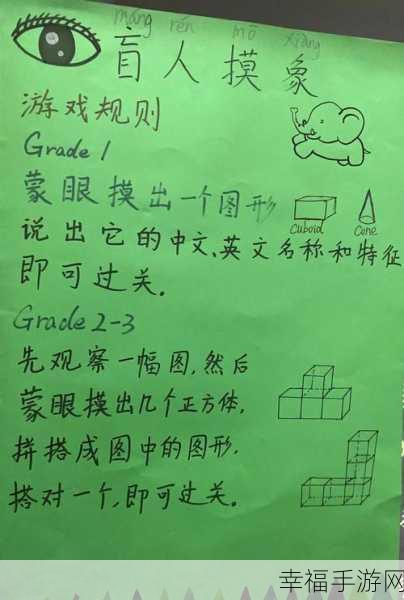 máng rén mō xiàng
盲人摸象
游戏规则
Grade 1
蒙眼摸出一个图形
Cuboid Cone
说出它的中文、英文名称和特征
即可过关.
Grade 2-3
先观察一幅图,然后
蒙眼摸出几个正方体,
拼搭成图中的图形.
搭对一个,即可过关。
幸福手游网